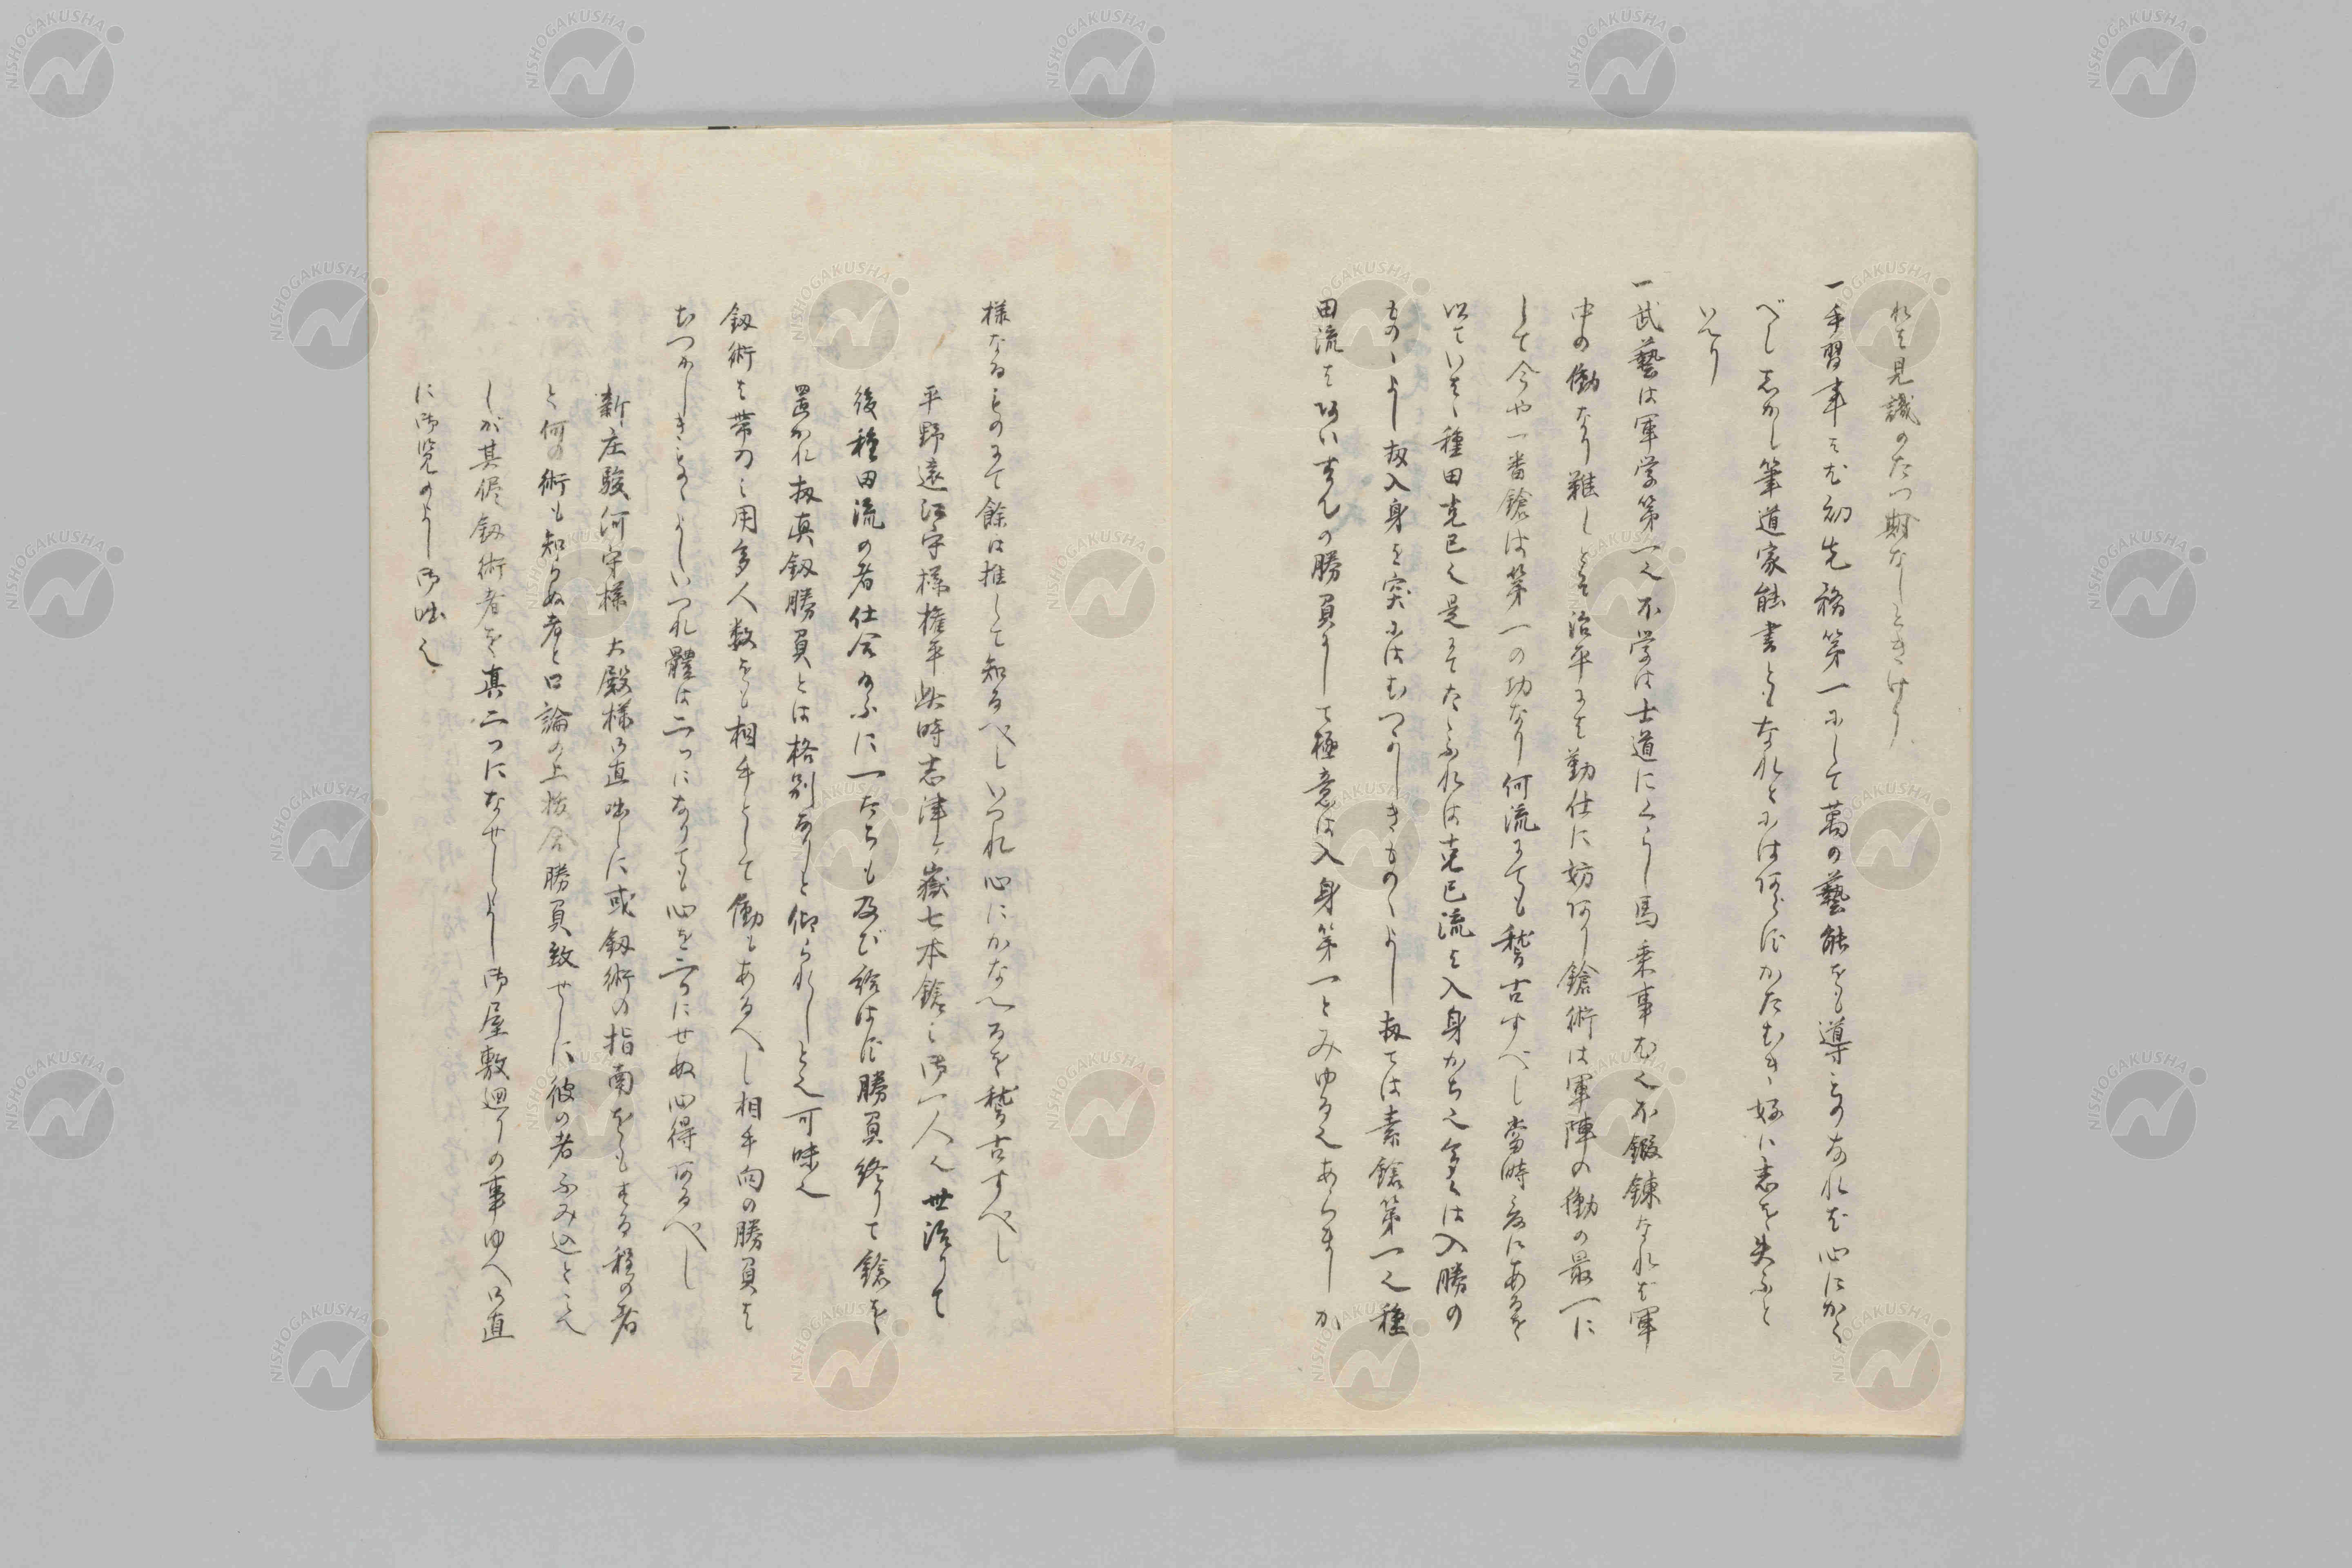 れは見識のたつ期なしときけり
一手習事は先初先務第一にして萬の藝能をも導ものなれば心にかく
べし志かし筆道家能書ともなれとには何らずかたむき好に志を失ふと
いへり
一武藝は軍学第一也不学は士道にくらし馬乗事も又不鍛錬なれば軍
中の働なり難しとて治平にも勤仕に妨あり鎗術は軍陣の働の最一に
して今や一番鎗は第一の功なり何流にても稽古すべし當時 にあるを
以ていはゝ種田克己也是にてたとふれは克己流は入身かち也多くは入勝の
ものゝよし扨入身を突にはむつかしきものゝよし扨ては素鎗第一也種
田流は あいすんの勝負にして極意は入身第一とみゆる也あらましか
様なるものにて餘は推して知るべしいつれ心にかなへるを稽古すべし
平野遠江守様権平此時志津ヶ嶽七本鎗之御一人也世治りて
後種田流の者仕合 に一たちも及び給はず勝負終りて鎗を
置かれ扨真釼勝負とは格別なりと仰られしと也可味也
釼術は帯刀之用多人数をも相手として働もあるへし相手向の勝負は
むつかしきものゝよしいつれ體は二つになりても心を二つにせぬ心得あるべし
新庄駿河守様 大殿様御直咄しに或釼術の指南をもする程の者
と何の術も知らぬ者と口論の上抜合勝負致せしに彼の者ふみ込とこへ
しが其侭釼術者を真二つになせしよし御屋敷廻りの事ゆへ御直
に御覧のよし御咄也
NISHOGAKUSHA